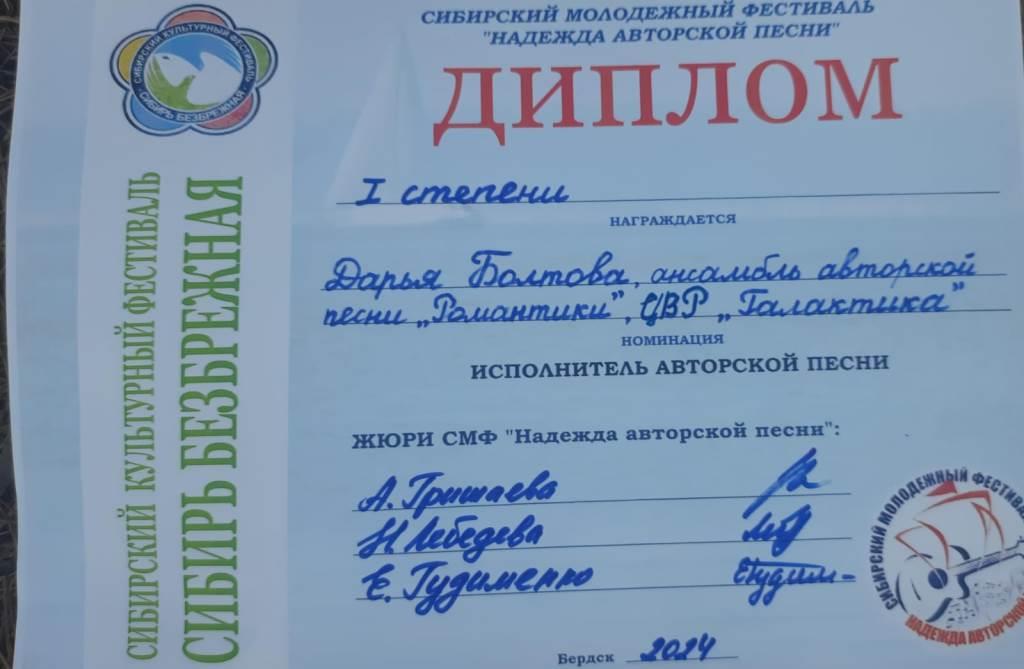 СИБИРСКИЙ КУЛЬТУРНЫЙ ФЕСТИВАЛЬ
СИБИРЬ БЕЗБРЕЖНАЯ
СИБИРСКИЙ КУЛЬТУРНЫЙ ФЕСТИВАЛЬ
СИБИРЬ БЕЗБРЕЖНАЯ
СИБИРСКИЙ МОЛОДЕЖНЫЙ ФЕСТИВАЛЬ
"НАДЕЖДА АВТОРСКОЙ ПЕСНИ"
ДИПЛОМ
I степени
НАГРАЖДАЕТСЯ
Дарья Болтова, ансамбль авторской
песни „Романтики", ЦВР „Галактика"
НОМИНАЦИЯ
ИСПОЛНИТЕЛЬ АВТОРСКОЙ ПЕСНИ
ЖЮРИ СМФ "Надежда авторской песни":
А. Гришаева
Н Лебедева
Е. Гудименко
СИБИРСКИЙ МОЛОДЕЖНЫЙ ФЕСТИВА
НАДЕЖДА АВТОРСКО
Бердск 2024